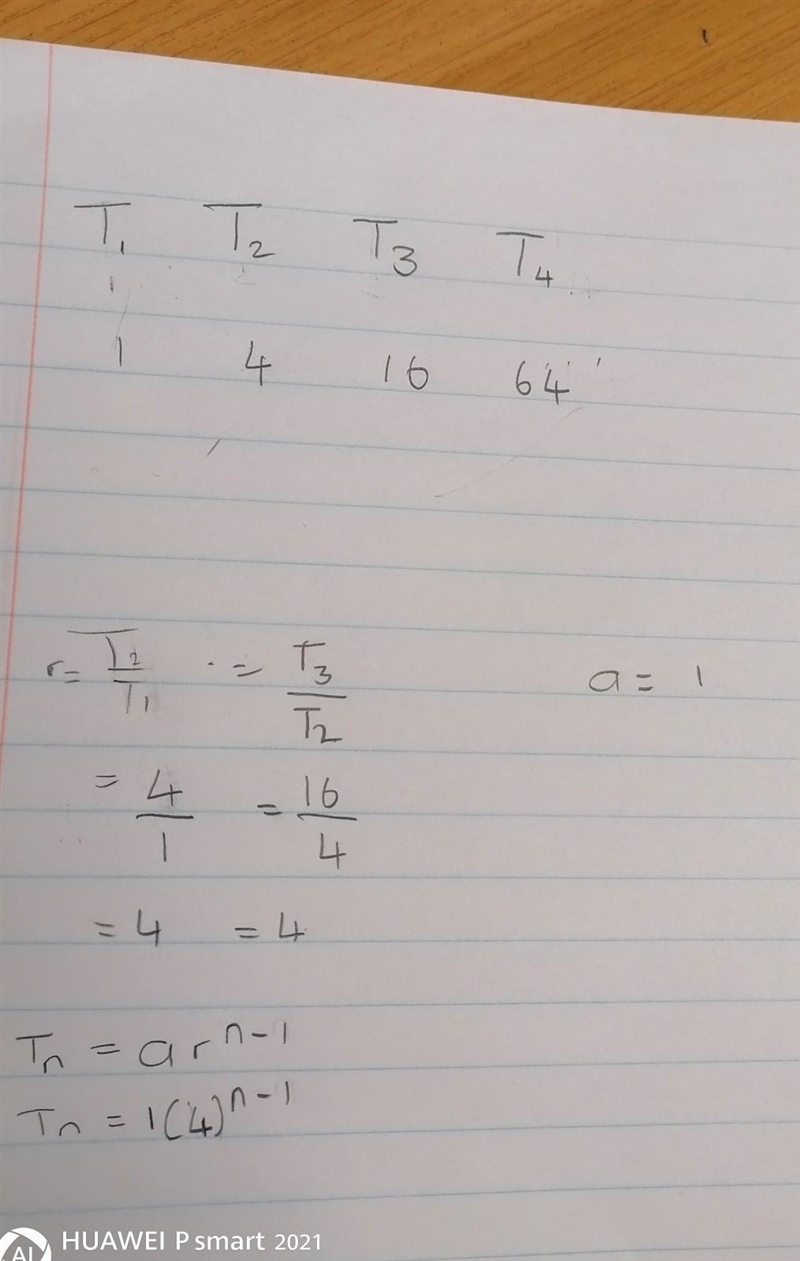 T₁ T₂ T₃ T₄
1 4 16 64
r = T₂/T₁ = T₃/T₂ a = 1
= 4/1 = 16/4
= 4 = 4
Tₙ = a r^(n-1)
Tₙ = 1(4)^(n-1)
AI HUAWEI P smart 2021